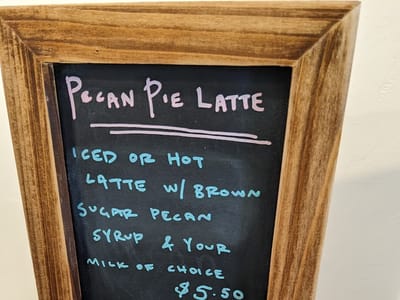 PECAN PIE LATTE
ICED OR HOT
LATTE W/ BROWN
SUGAR PECAN
SYRUP & YOUR
MILK OF CHOICE
$5.50